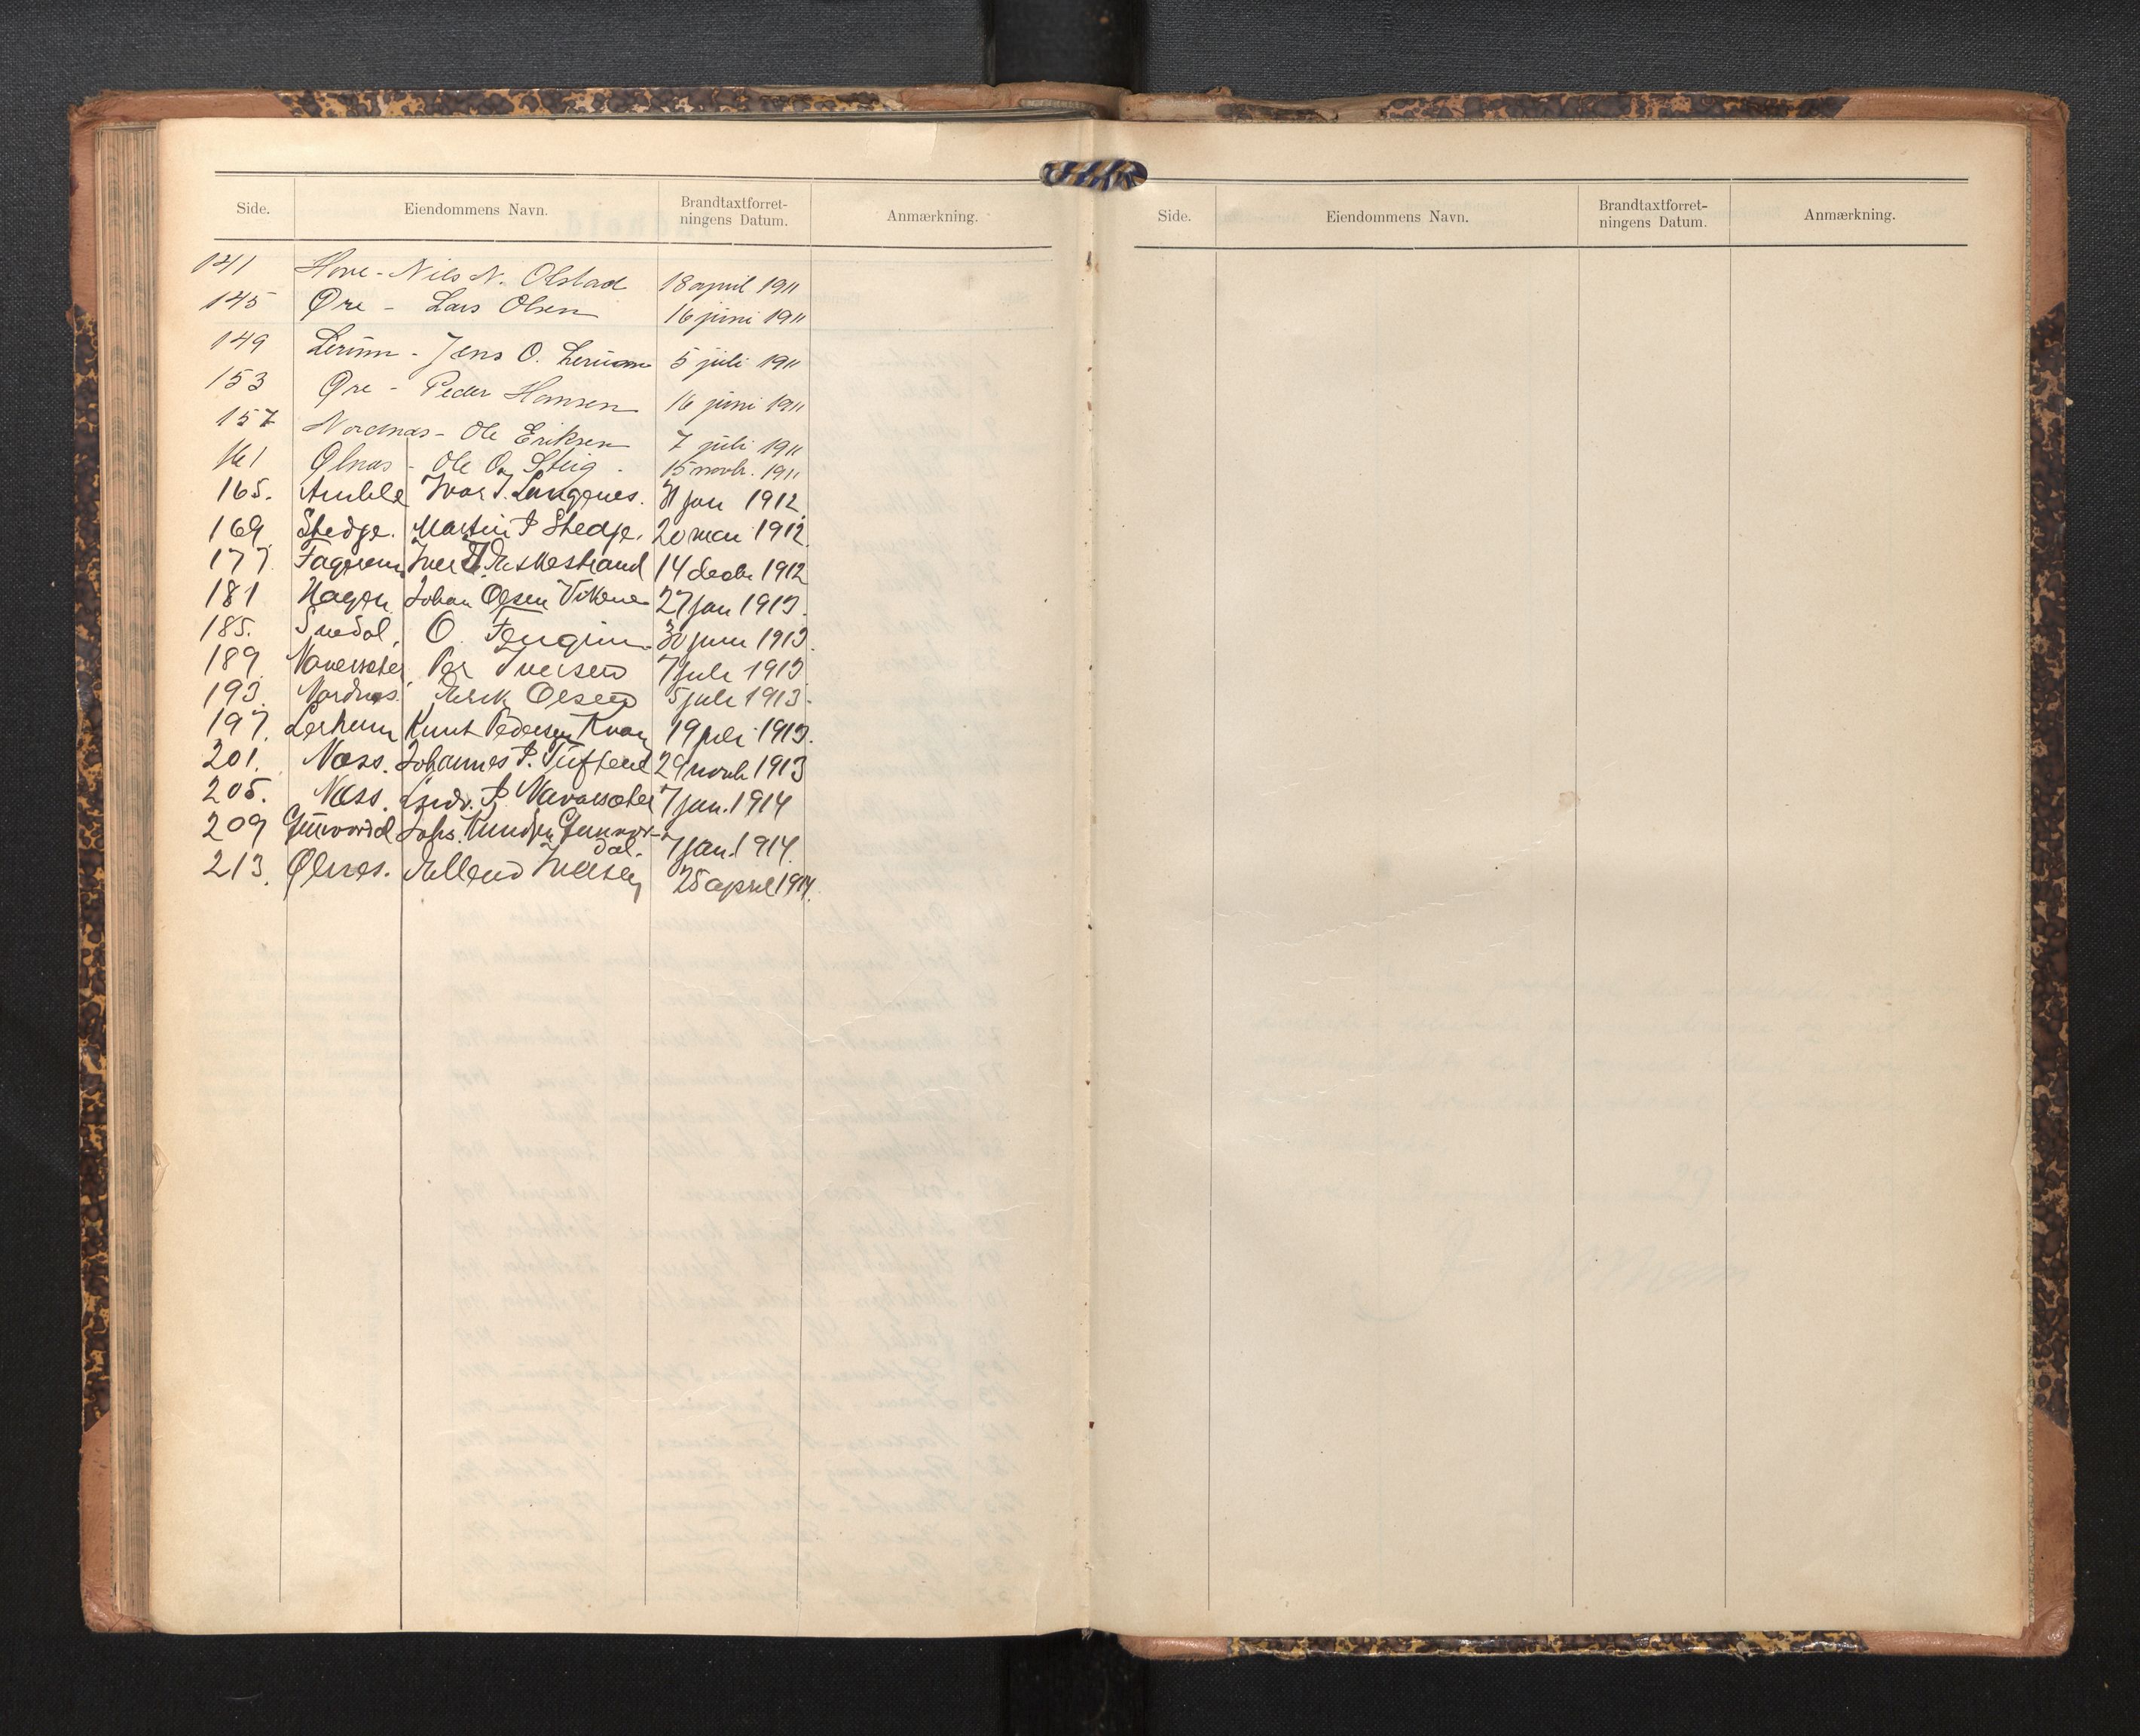 Side. Eiendommens Navn. Brandtaxtforret-ningens Datum. Anmærkning.
141 Hove - Nils N. Olstad 18 april 1911
145 Øre - Lars Olsen 16 juni 1911
149 Lerum - Jens O. Lerum 5 juli 1911
153 Øre - Peder Hansen 16 juni 1911
157 Nordnas - Ole Eriksen 7 juli 1911
161 Ølnas - Ole O. Steig. 15 novb. 1911
165. Amble Ivar J. Langenes. 31 jan 1912
169. Stedje. Martin P Stedje. 20 mai 1912.
177. Iver 14 decbr 1912
181 Hagen Johan Olsen 27 jan 1913.
185. O. 30 juni 1913.
189. Navarsæter Per Iversen 7 juli 1913
193. Nordnes. Erik Olsen 5 juli 1913.
197. Lerhum Knut Pedersen Kvam 19 juli 1913.
201. Næss. Johannes P. 29 novb 1913
205. Næss. Endr. P. Navarsæter 7 jan. 1914
209 Gunvordal Johs. Knudsen Gunvor-dal. 7 jan. 1914.
213. Ølnes. Erllend Iversen 25 april 1914.
Side. Eiendommens Navn. Brandtaxtforret-ningens Datum. Anmærkning.